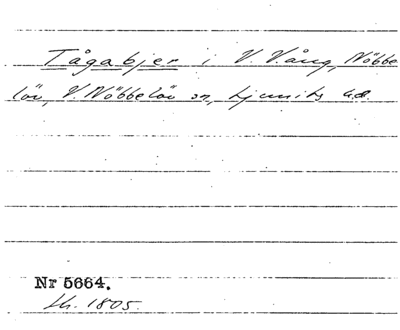 Tågabjer i V. Vång, Nöbbe
löv, V. Nöbbelöv sn, Ljunits hd.
Nr 5664.
1805.